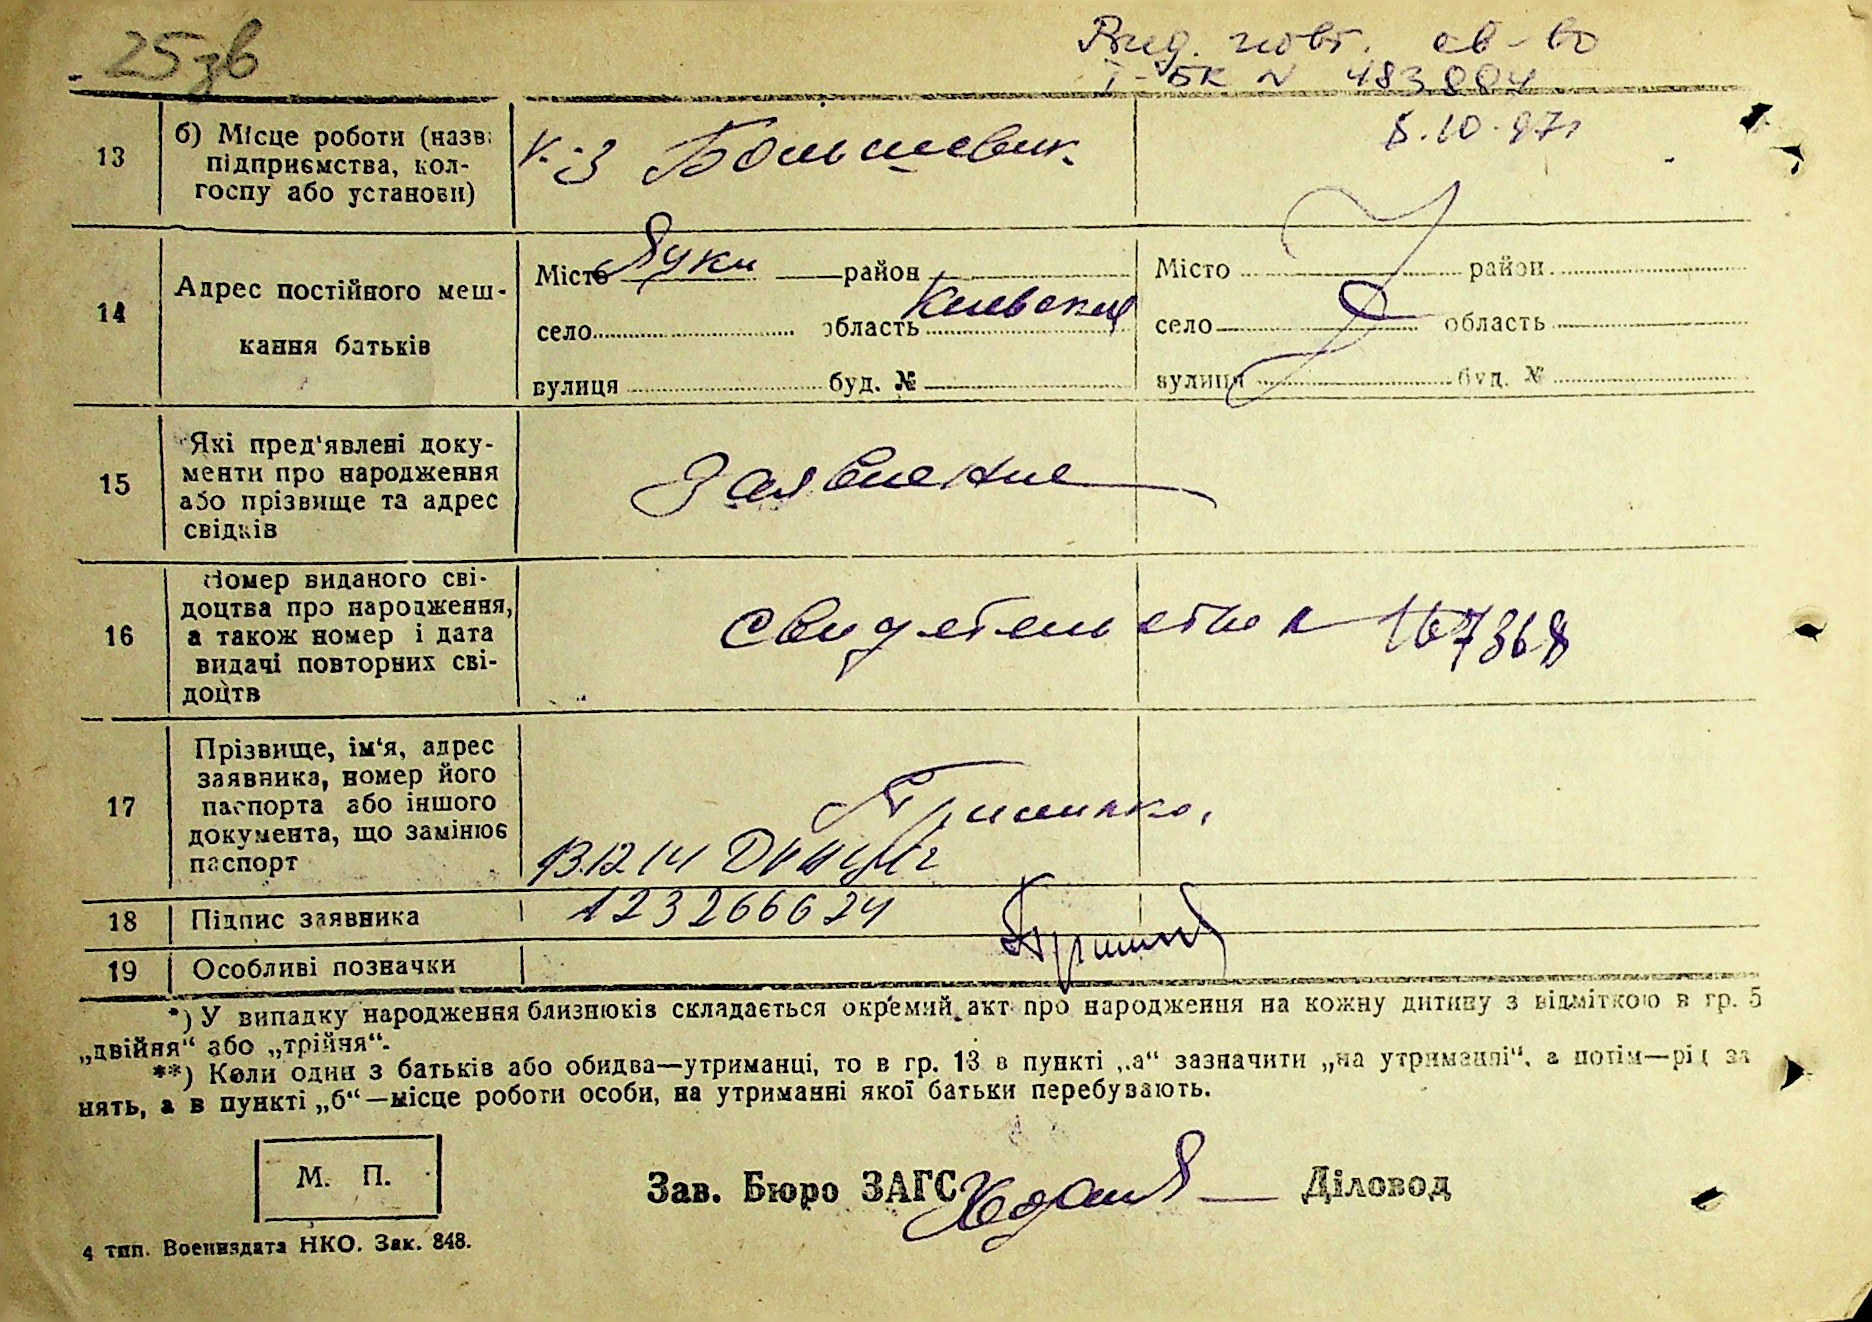 25зв
Вид. повт. св-во
I-БК N 483884
8.10.97г
13
б) Місце роботи (назв
підприємства, кол-
госпу або установи)
к-з Большевик
14
Адрес постійного меш-
кання батьків
Місто Луки район
село область Киевская
вулиця буд. №
Місто район
село область
вулиця буд. №
15
Які пред'явлені доку-
менти про народження
або прізвище та адрес
свідків
Заявление
16
Номер виданого сві-
доцтва про народження,
а також номер і дата
видачі повторних сві-
доцтв
свидетельство 167368
17
Прізвище, ім'я, адрес
заявника, номер його
паспорта або іншого
документа, що замінює
паспорт
18
Підпис заявника
123266624
19
Особливі позначки
*) У випадку народження близнюків складається окремий акт про народження на кожну дитину з відміткою в гр. 5
„двійня“ або „трійня“.
**) Коли один з батьків або обидва—утриманці, то в гр. 13 в пункті „а“ зазначити „на утриманні“, а потім—рід за
нять, а в пункті „б“—місце роботи особи, на утриманні якої батьки перебувають.
М. П.
Зав. Бюро ЗАГС Діловод
4 тип. Воениздата НКО. Зак. 848.